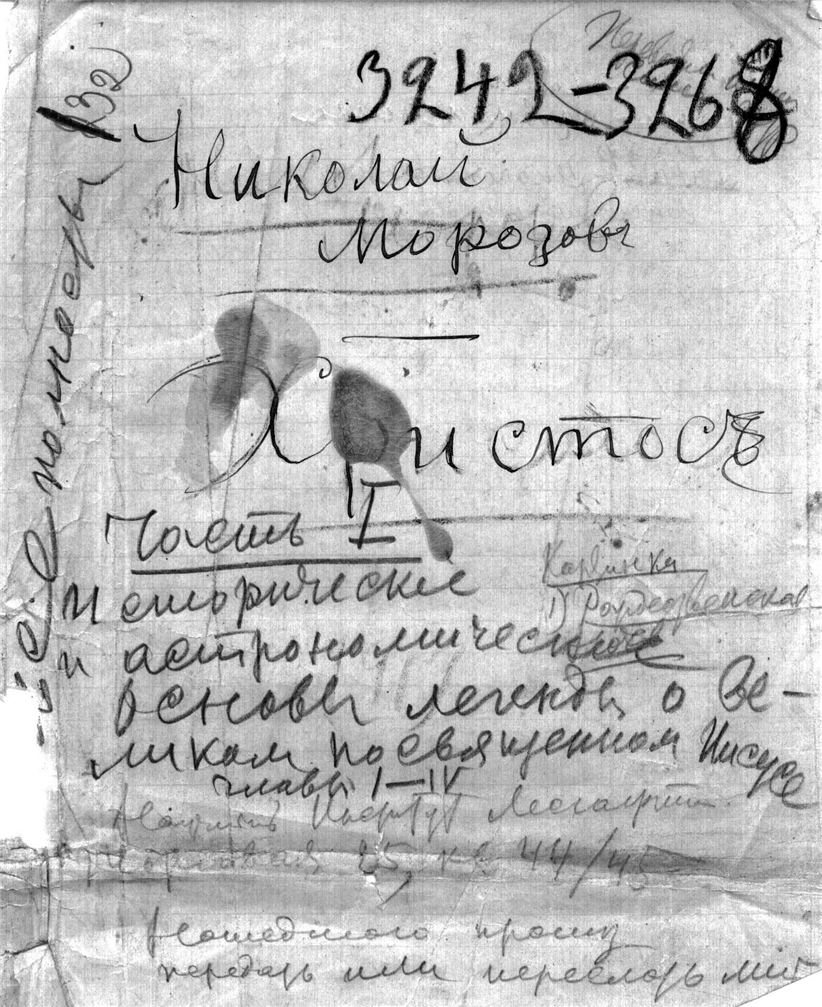 3242-3268
132
Николай
Морозовъ
Христосъ
Часть I
Исторические
и астрономические
основы легенды о Ве-
ликом посвященном Иисусе
главы I—IV
Картинка
1) Рождественская
Научный Институт Лесгафта
25, кв 44/45
Нашедшего прошу
передать или переслать мне